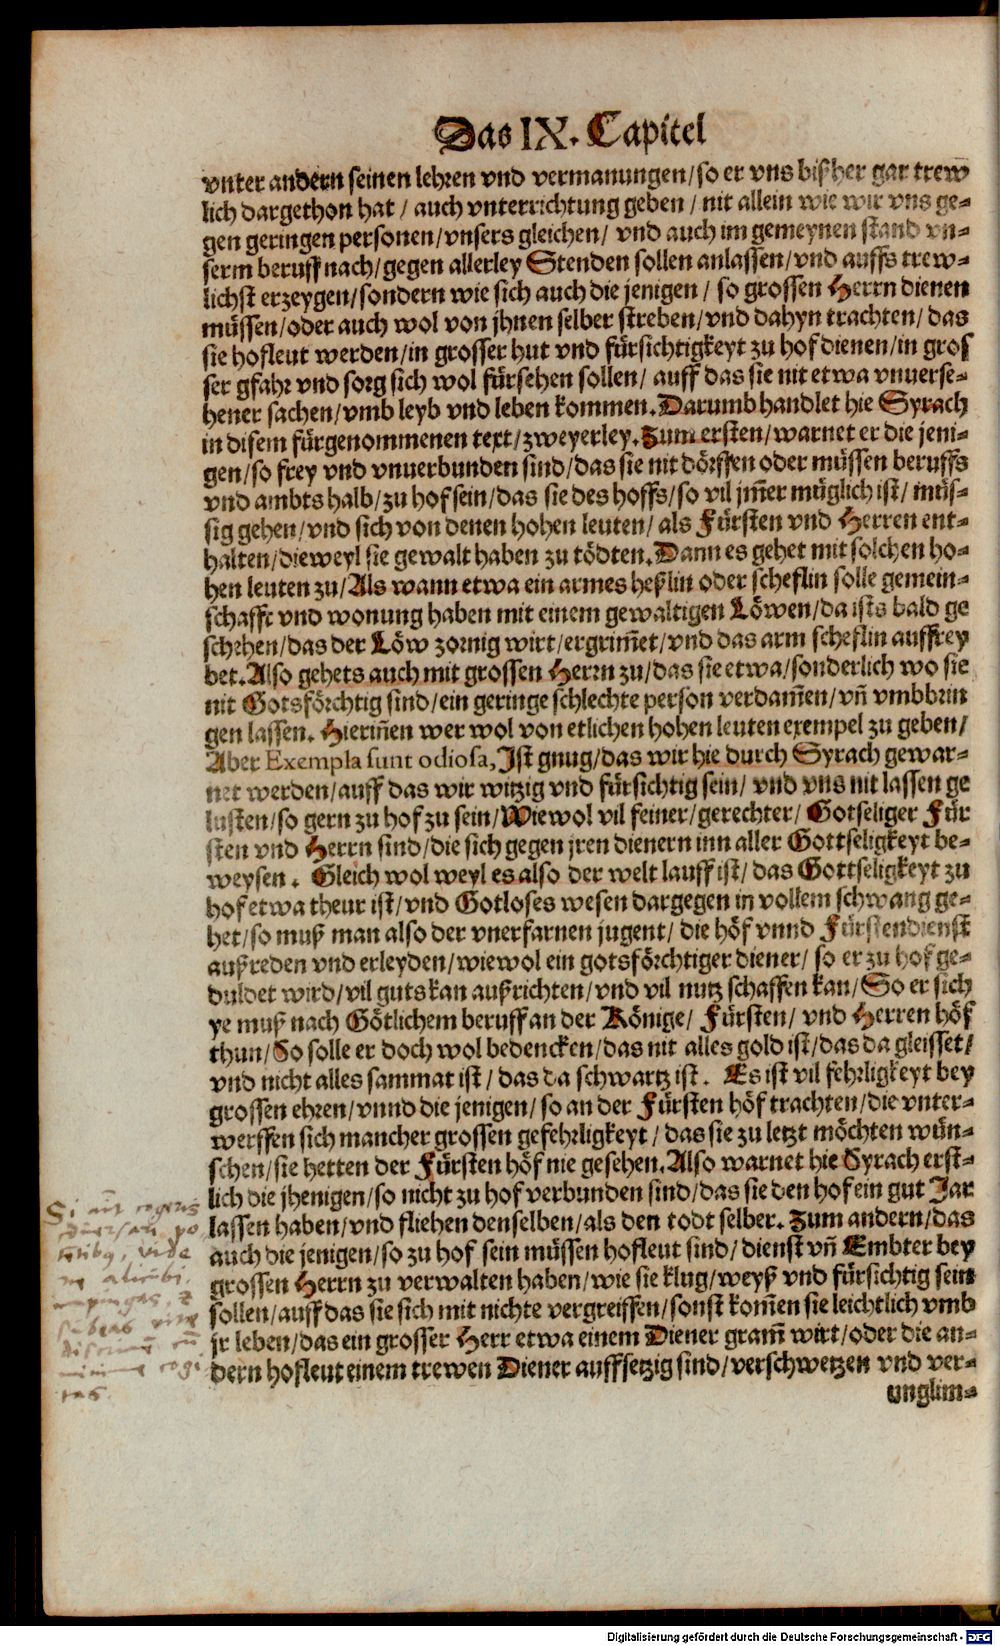 Das IX. Capitel
vnter andern seinen lehren vnd vermanungen/so er vns bißher gar trew
lich dargethon hat / auch vnterrichtung geben / nit allein wie wir vns ge⸗
gen geringen personen/vnsers gleichen/ vnd auch im gemeynen stand vn⸗
serm beruff nach/gegen allerley Stenden sollen anlassen/vnd auffs trew⸗
lichst erzeygen/sondern wie sich auch die jenigen / so grossen Herrn dienen
müssen/oder auch wol von jhnen selber streben/vnd dahyn trachten/ das
sie hofleut werden/in grosser hut vnd fürsichtigkeyt zu hof dienen/in gros
ser gfahr vnd sorg sich wol fürsehen sollen/ auff das sie nit etwa vnuerse⸗
hener sachen/vmb leyb vnd leben kommen. Darumb handlet hie Syrach
in disem fürgenommenen text/zweyerley. Zum ersten/warnet er die jeni⸗
gen/so frey vnd vnuerbunden sind/das sie nit dörffen oder müssen beruffs
vnd ambts halb/zu hof sein/das sie des hoffs/so vil jm̃er müglich ist/ müs⸗
sig gehen/vnd sich von denen hohen leuten/ als Fürsten vnd Herren ent⸗
halten/dieweyl sie gewalt haben zu tödten. Dann es gehet mit solchen ho⸗
hen leuten zu/Als wann etwa ein armes heßlin oder scheflin solle gemein⸗
schafft vnd wonung haben mit einem gewaltigen Löwen/da ists bald ge
schehen/das der Löw zornig wirt/ergrim̃et/vnd das arm scheflin auffrey
bet. Also gehets auch mit grossen Herrn zu/das sie etwa/sonderlich wo sie
nit Gotsförchtig sind/ein geringe schlechte person verdam̃en/vñ vmbbrin
gen lassen. Hieriñen wer wol von etlichen hohen leuten exempel zu geben/
Aber Exempla sunt odiosa, Ist gnug/das wir hie durch Syrach gewar⸗
net werden/auff das wir witzig vnd fürsichtig sein/ vnd vns nit lassen ge
lusten/so gern zu hof zu sein/Wiewol vil feiner/gerechter/ Gotseliger Für
sten vnd Herrn sind/die sich gegen jren dienern inn aller Gottseligkeyt be⸗
weysen. Gleich wol weyl es also der welt lauff ist/ das Gottseligkeyt zu
hof etwa theur ist/vnd Gotloses wesen dargegen in vollem schwang ge⸗
het/so muß man also der vnerfarnen jugent/ die höf vnnd Fürstendienst
außreden vnd erleyden/wiewol ein gotsförchtiger diener/ so er zu hof ge⸗
duldet wird/vil guts kan außrichten/vnd vil nutz schaffen kan/So er sich
ye muß nach Götlichem beruff an der Könige/ Fürsten/ vnd Herren höf
thun/So solle er doch wol bedencken/das nit alles gold ist/das da gleisset/
vnd nicht alles sammat ist/ das da schwartz ist. Es ist vil fehrligkeyt bey
grossen ehren/vnnd die jenigen/so an der Fürsten höf trachten/die vnter⸗
werffen sich mancher grossen gefehrligkeyt / das sie zu letzt möchten wün⸗
schen/sie hetten der Fürsten höf nie gesehen. Also warnet hie Syrach erst⸗
lich die jhenigen/so nicht zu hof verbunden sind/das sie den hof ein gut Jar
lassen haben/vnd fliehen denselben/als den todt selber. Zum andern/das
auch die jenigen/so zu hof sein müssen hofleut sind/ dienst vñ Embter bey
grossen Herrn zu verwalten haben/wie sie klug/weyß vnd fürsichtig sein
sollen/auff das sie sich mit nichte vergreiffen/sonst kom̃en sie leichtlich vmb
jr leben/das ein grosser Herr etwa einem Diener gram̃ wirt/oder die an⸗
dern hofleut einem trewen Diener auffsetzig sind/verschwetzen vnd ver⸗
unglim⸗
Si aũt cogeris
po
vide
ne alicubi
cogi
tas.
Digitalisierung gefördert durch die Deutsche Forschungsgemeinschaft - DFG